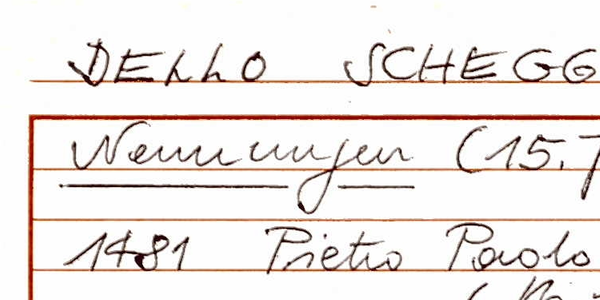 DELLO SCHEGG
Nennungen (15.7
1481 Pietro Paolo